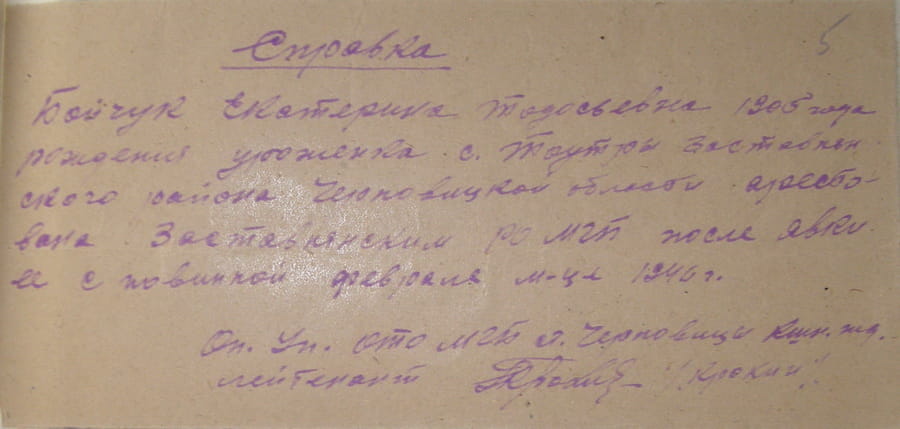 5
Справка
Бойчук Екатерина Тодосьевна 1905 года
рождения уроженка с. Тоутры Заставнен-
ского района Черновицкой области аресто-
вана Заставненским РО МГБ после явки
ее с повинной февраля м-ца 1946 г.
Оп. Уп. ОТО МГБ ст. Черновицы Кшн. жд.
лейтенант /Крокий/